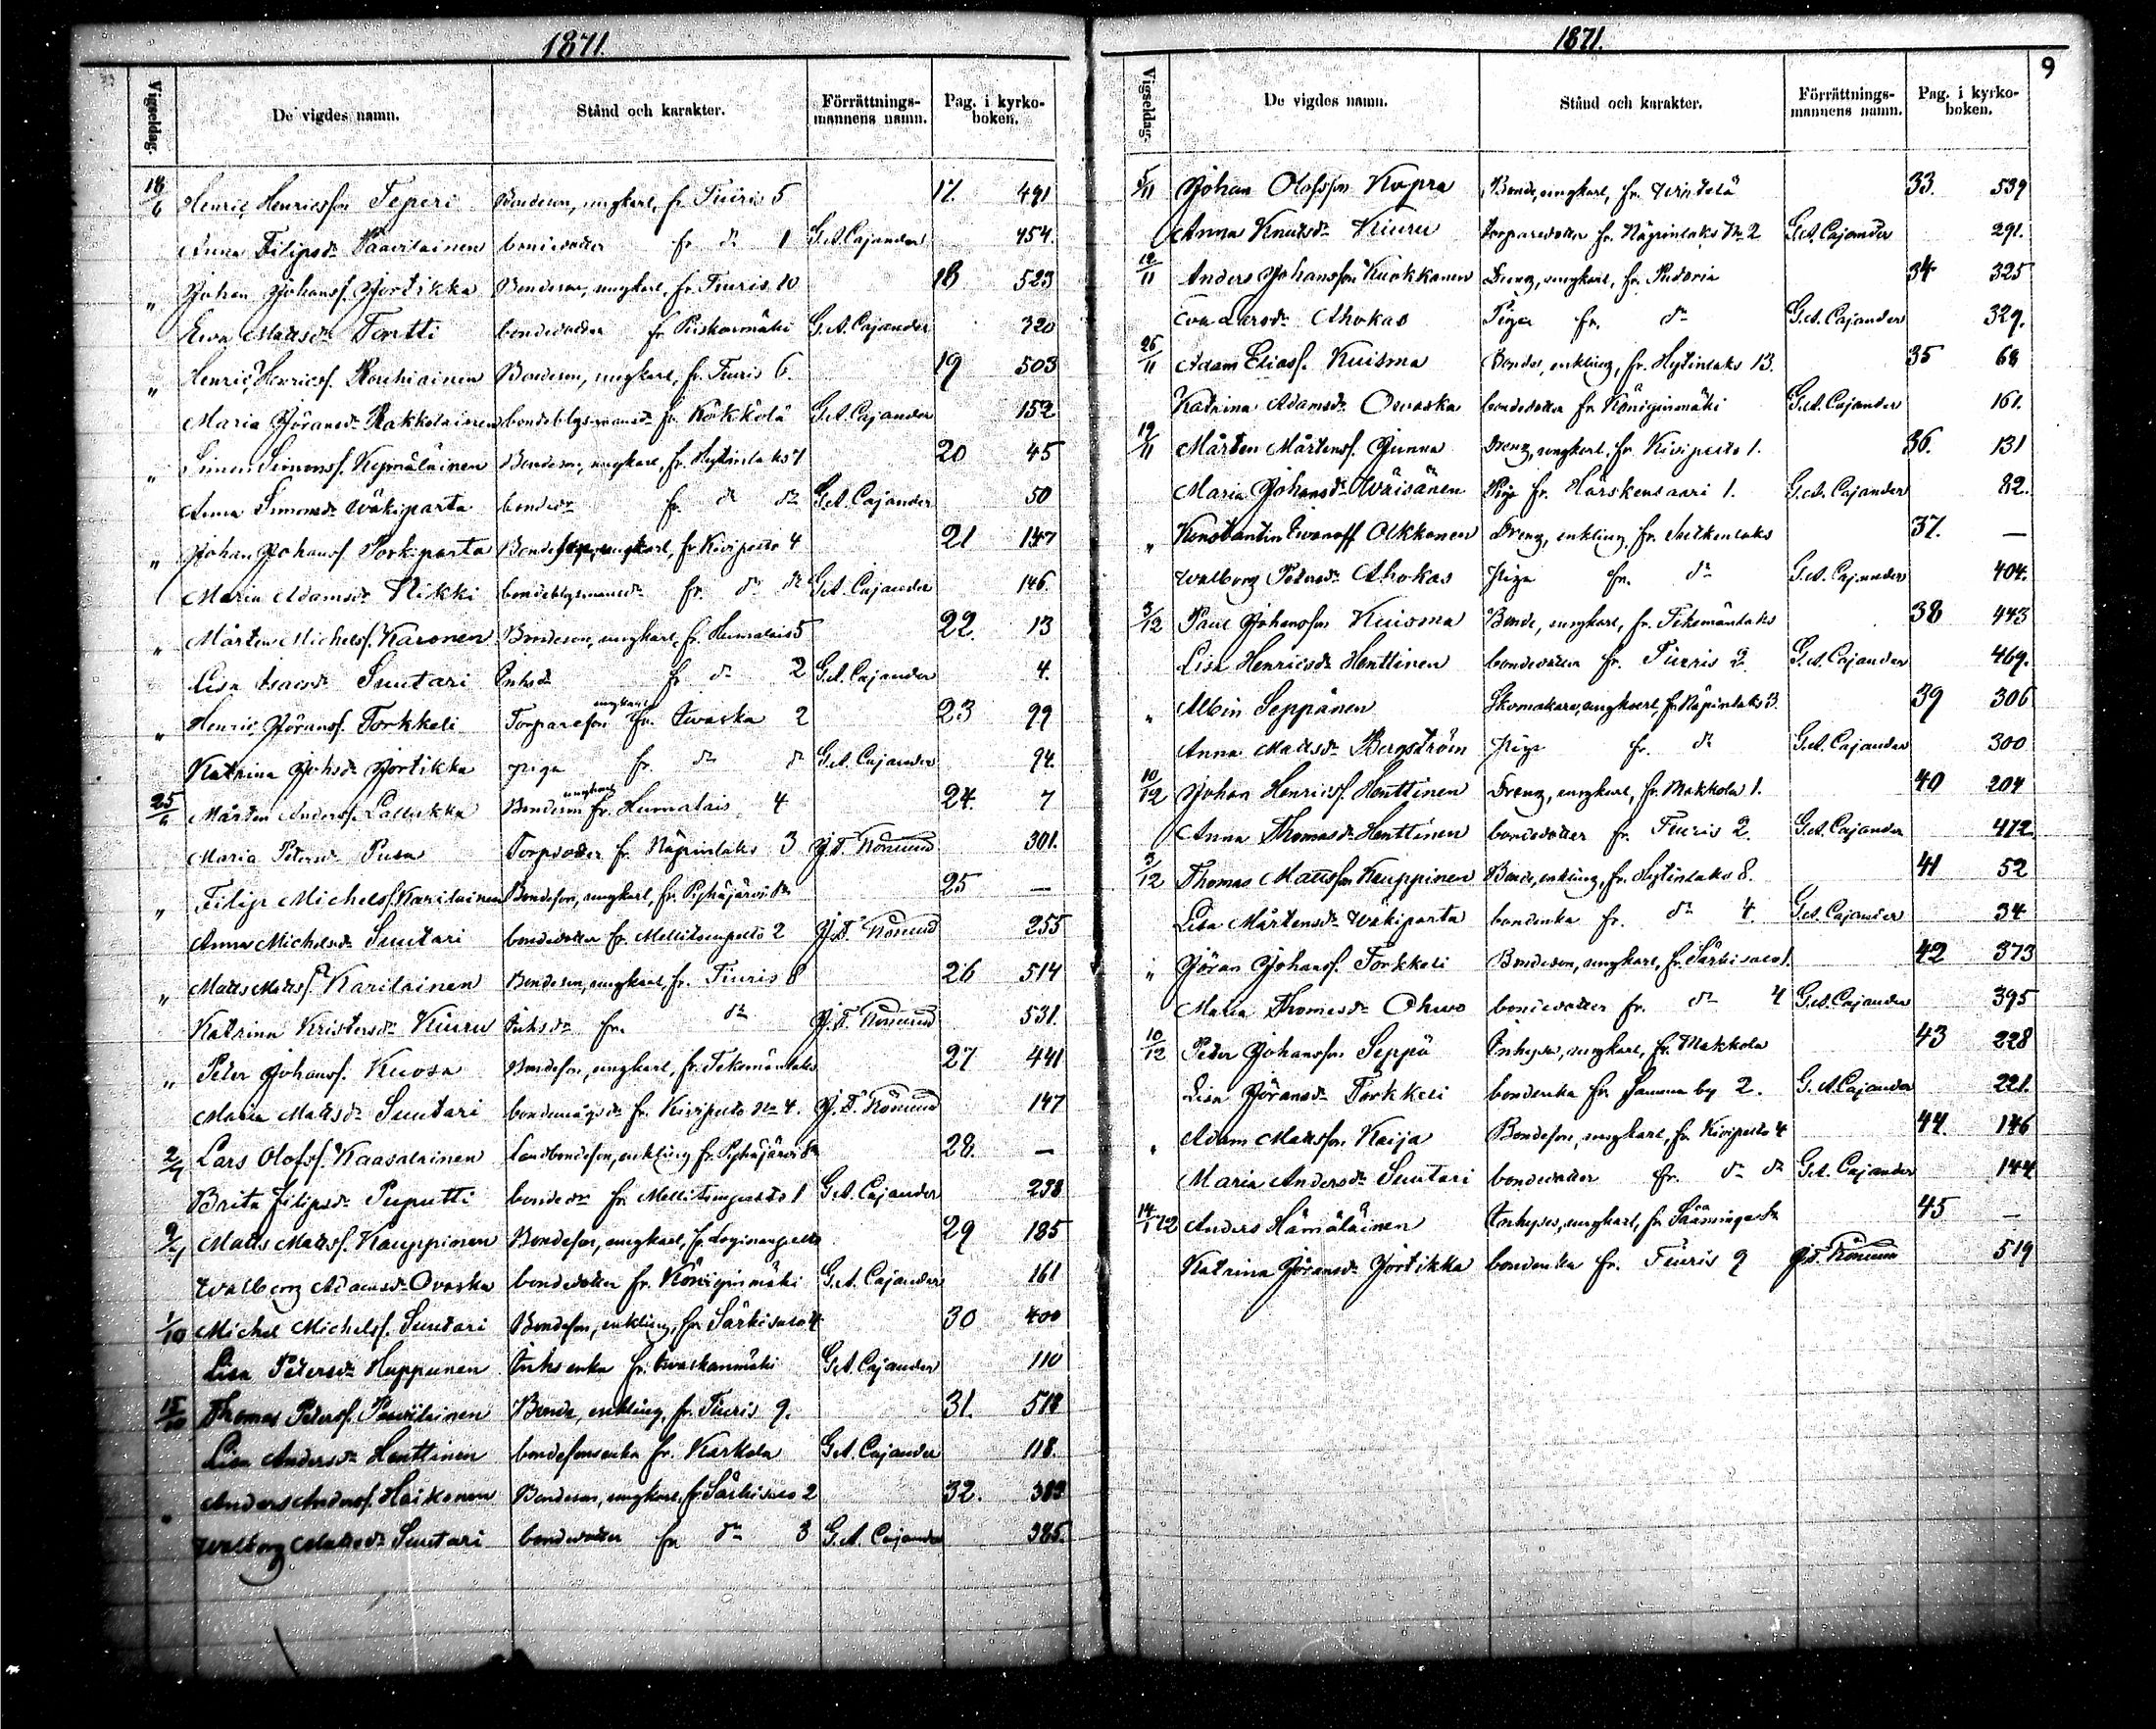 1871.
Vigseldag. De vigdes namn. Stånd och karakter. Förrättnings-mannens namn. Pag. i kyrko-boken.
18/6 Henric Henricsson Teperi Bondeson, ungkarl, fr. Tiuris 5 17. 491
Anna Filipsdr Paavilainen bondedotter fr dr 1 G.A. Cajander 454.
" Johan Johansf. Jortikka Bondeson, ungkarl, fr. Tiuris 10 18 523
Ewa Mattsdr Tontti bondedotter fr Puskormäki G.A. Cajander 320
" Henric Henricsf. Rouhiainen Bondeson, ungkarl, fr. Tiuris 6. 19 503
Maria Jöransdr Rakkolainen fr. Kokkola G.A. Cajander 152
" Simon Simonsf. Kypnäläinen Bondeson, ungkarl, fr. Hytinlaks 7 20 45
Anna Simonsdr Wäkiparta bondedr fr. dr dr G.A. Cajander 50
" Johan Johansf. Porkiparta ungkarl, fr. Kivipelto 4 21 147
Maria Adamsdr Nikki fr. dr dr G.A. Cajander 146.
" Mårten Michelsf. Karonen Bondeson, ungkarl, fr. Humalais 5 22. 13
Lisa Isacsdr Suutari Inhsdr fr dr 2 G.A. Cajander 4.
" Henric Jöransf. Torkkeli Torpareson ungkarl fr. Iwaska 2 23 99
Katrina Johsdr Jortikka piga fr. dr dr G.A. Cajander 94.
25/6 Mårten Andersf. Lallukka Bondeson ungkarl fr. Humalais 4 24. 7
Maria Petersdr Pusa Torpdotter fr. Näprinlaks 3 J.F. Komund 301.
" Filip Michelsf. Karilainen Bondeson, ungkarl, fr. Pyhäjärvi Sn 25 —
Anna Michelsdr Suutari bondedotter fr. Mellitsenpelto 2 J.F. Komund 255
" Matts Mattsf. Karilainen Bondeson, ungkarl fr. Tiuris 8 26 514
Katrina Kristersdr Kiuru Inhsdr fr. dr J.F. Komund 531.
" Peter Johansf. Kuosa Bondeson, ungkarl, fr. Tekemäntaks 27 441
Maria Mattsdr Suutari bondemågsdr fr. Kivipelto No 4. J.F. Komund 147
2/7 Lars Olofsf. Kaasalainen Landbondeson, enkling fr. Pyhäjärvi Sn 28. —
Brita Filipsdr Puputti bondedr fr. Mellitsenpelto 1 G.A. Cajander 238
9/7 Matts Mattsf. Kauppinen Bondeson, ungkarl, fr. Loginanpelto 29 185
Walborg Adamsdr Ovaska bondedotter fr. Könniginmäki G.A. Cajander 161
1/10 Michel Michelsf. Suutari Bondeson, enkling, fr. Särkisalo 4 30 400
Lisa Petersdr Huppunen Inhs enka fr. Iwaskanmäki G.A. Cajander 110
15/10 Thomas Petersf. Paavilainen Bonde, enkling, fr. Tiuris 9. 31. 518
Lisa Andersdr Henttinen bondesonsenka fr. Karkola G.A. Cajander 118.
" Anders Andersf. Haikonen Bondeson, ungkarl, fr Särkisalo 2 32. 383
Walborg Mattsdr Suutari bondedotter fr dr 3 G.A. Cajander 385.
1871.
9
Vigseldag. De vigdes namn. Stånd och karakter. Förrättnings-mannens namn. Pag. i kyrko-boken.
5/11 Johan Olofsson Kopra Bonde, ungkarl, fr. 33. 539
Anna Knutsdr Kiuru torparedotter fr. Näprinlaks No 2 G.A. Cajander 291.
12/11 Anders Johansson Kuokkanen Dreng, ungkarl, fr. Putoria 34 325
Eva Larsdr Ahokas Piga fr. dr G.A. Cajander 329.
26/11 Adam Eliasf. Kuisma Bonde, enkling, fr. Hytinlaks 13. 35 68
Katrina Adamsdr Owaska bondedotter fr Könniginmäki G.A. Cajander 161.
12/11 Mårten Mårtensf. Junna Dreng, ungkarl, fr. Kivipelto 1. 36. 131
Maria Johansdr Wäisänen Piga fr. Härskensaari 1. G.A. Cajander 82.
" Konstantin Iwanoff Olkkonen Dreng, enkling, fr. 37. —
Walborg Petersdr Ahokas Piga fr. dr G.A. Cajander 404.
3/12 Paul Johansson Kuisma Bonde, ungkarl, fr. Tekemäntaks 38 443
Lisa Henricsdr Henttinen bondedotter fr. Tiuris 2 G.A. Cajander 469.
" Albin Seppänen Skomakare, ungkarl, fr. Näprinlaks 3. 39 306
Anna Mattsdr Bergström Piga fr. dr G.A. Cajander 300
10/12 Johan Henricsf. Henttinen Dreng, ungkarl, fr. Makkola 1. 40 204
Anna Thomasdr Henttinen bondedotter fr. Tiuris 2. G.A. Cajander 472.
3/12 Thomas Mattsson Kauppinen Bonde, enkling, fr. Hytinlaks 8. 41 52
Lisa Mårtensdr Wäkiparta bondenka fr. dr 4. G.A. Cajander 34
" Jöran Johansf. Torkkeli Bondeson, ungkarl, fr. Särkisalo 1. 42 373
Maria Thomasdr Ohvo bondedotter fr. dr 4 G.A. Cajander 395
10/12 Peter Johansson Seppä Inhyses, ungkarl, fr. Makkola 43 228
Lisa Jöransdr Torkkeli bondenka fr. samma by 2. G.A. Cajander 221.
" Adam Mattsson Kaija Bondeson, ungkarl, fr. Kivipelto 4 44 146
Maria Andersdr Suutari bondedotter fr. dr dr G.A. Cajander 144
14/12 Anders Hämäläinen Inhyses, ungkarl, fr Sääminge Sn 45 —
Katrina Jöransdr Jortikka bondenka fr. Tiuris 9 J.F. Komund 519